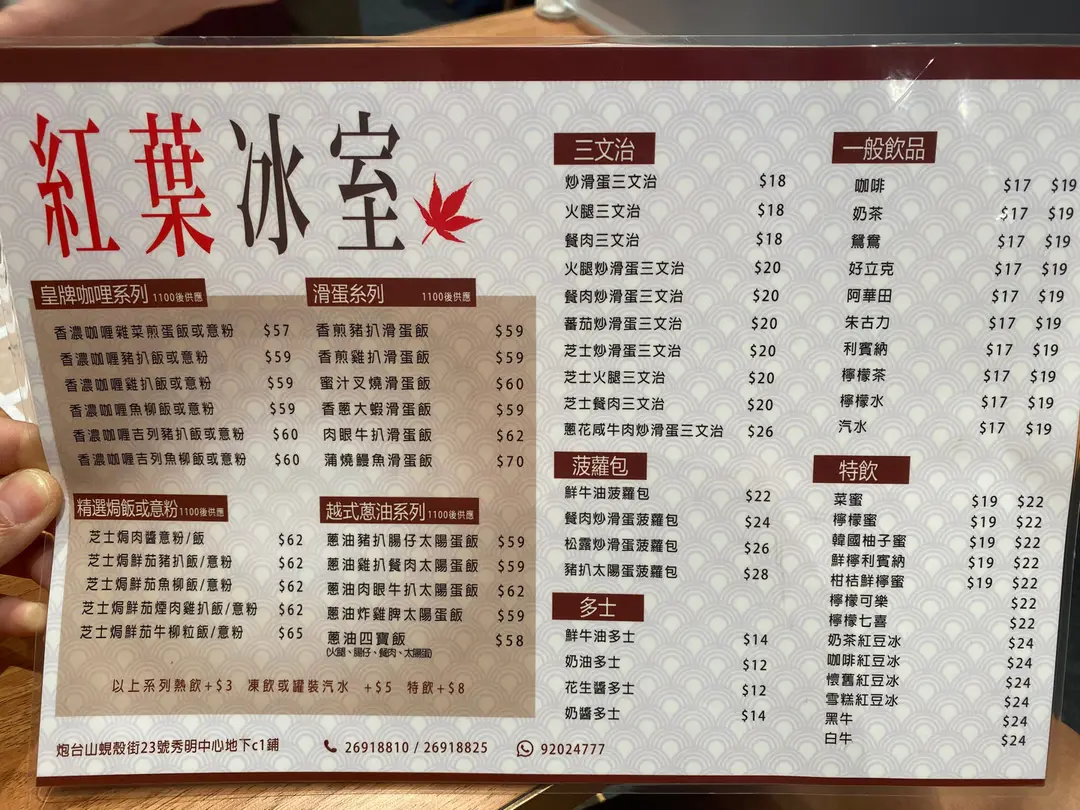 紅葉冰室
皇牌咖哩系列 1100後供應
香濃咖喱雜菜煎蛋飯或意粉 $57
香濃咖喱豬扒飯或意粉 $59
香濃咖喱雞扒飯或意粉 $59
香濃咖喱魚柳飯或意粉 $59
香濃咖喱吉列豬扒飯或意粉 $60
香濃咖喱吉列魚柳飯或意粉 $60
滑蛋系列 1100後供應
香煎豬扒滑蛋飯 $59
香煎雞扒滑蛋飯 $59
蜜汁叉燒滑蛋飯 $60
香蔥大蝦滑蛋飯 $59
肉眼牛扒滑蛋飯 $62
蒲燒鰻魚滑蛋飯 $70
精選焗飯或意粉 1100後供應
芝士焗肉醬意粉/飯 $62
芝士焗鮮茄豬扒飯/意粉 $62
芝士焗鮮茄魚柳飯/意粉 $62
芝士焗鮮茄煙肉雞扒飯/意粉 $62
芝士焗鮮茄牛柳粒飯/意粉 $65
越式蔥油系列 1100後供應
蔥油豬扒腸仔太陽蛋飯 $59
蔥油雞扒餐肉太陽蛋飯 $59
蔥油肉眼牛扒太陽蛋飯 $62
蔥油炸雞脾太陽蛋飯 $59
蔥油四寶飯 $58
(火腿、腸仔、餐肉、太陽蛋)
以上系列熱飲+$3 凍飲或罐裝汽水 +$5 特飲+$8
三文治
炒滑蛋三文治 $18
火腿三文治 $18
餐肉三文治 $18
火腿炒滑蛋三文治 $20
餐肉炒滑蛋三文治 $20
蕃茄炒滑蛋三文治 $20
芝士炒滑蛋三文治 $20
芝士火腿三文治 $20
芝士餐肉三文治 $20
蔥花咸牛肉炒滑蛋三文治 $26
菠蘿包
鮮牛油菠蘿包 $22
餐肉炒滑蛋菠蘿包 $24
松露炒滑蛋菠蘿包 $26
豬扒太陽蛋菠蘿包 $28
多士
鮮牛油多士 $14
奶油多士 $12
花生醬多士 $12
奶醬多士 $14
一般飲品
咖啡 $17 $19
奶茶 $17 $19
鴛鴦 $17 $19
好立克 $17 $19
阿華田 $17 $19
朱古力 $17 $19
利賓納 $17 $19
檸檬茶 $17 $19
檸檬水 $17 $19
汽水 $17 $19
特飲
菜蜜 $19 $22
檸檬蜜 $19 $22
韓國柚子蜜 $19 $22
鮮檸利賓納 $19 $22
柑桔鮮檸蜜 $19 $22
檸檬可樂 $22
檸檬七喜 $22
奶茶紅豆冰 $24
咖啡紅豆冰 $24
懷舊紅豆冰 $24
雪糕紅豆冰 $24
黑牛 $24
白牛 $24
炮台山蜆殼街23號秀明中心地下c1鋪 26918810 / 26918825 92024777